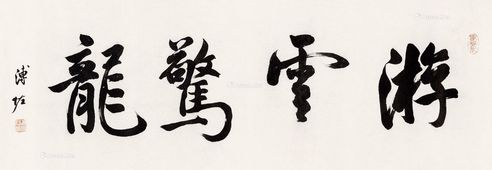 游雲驚龍
溥佐